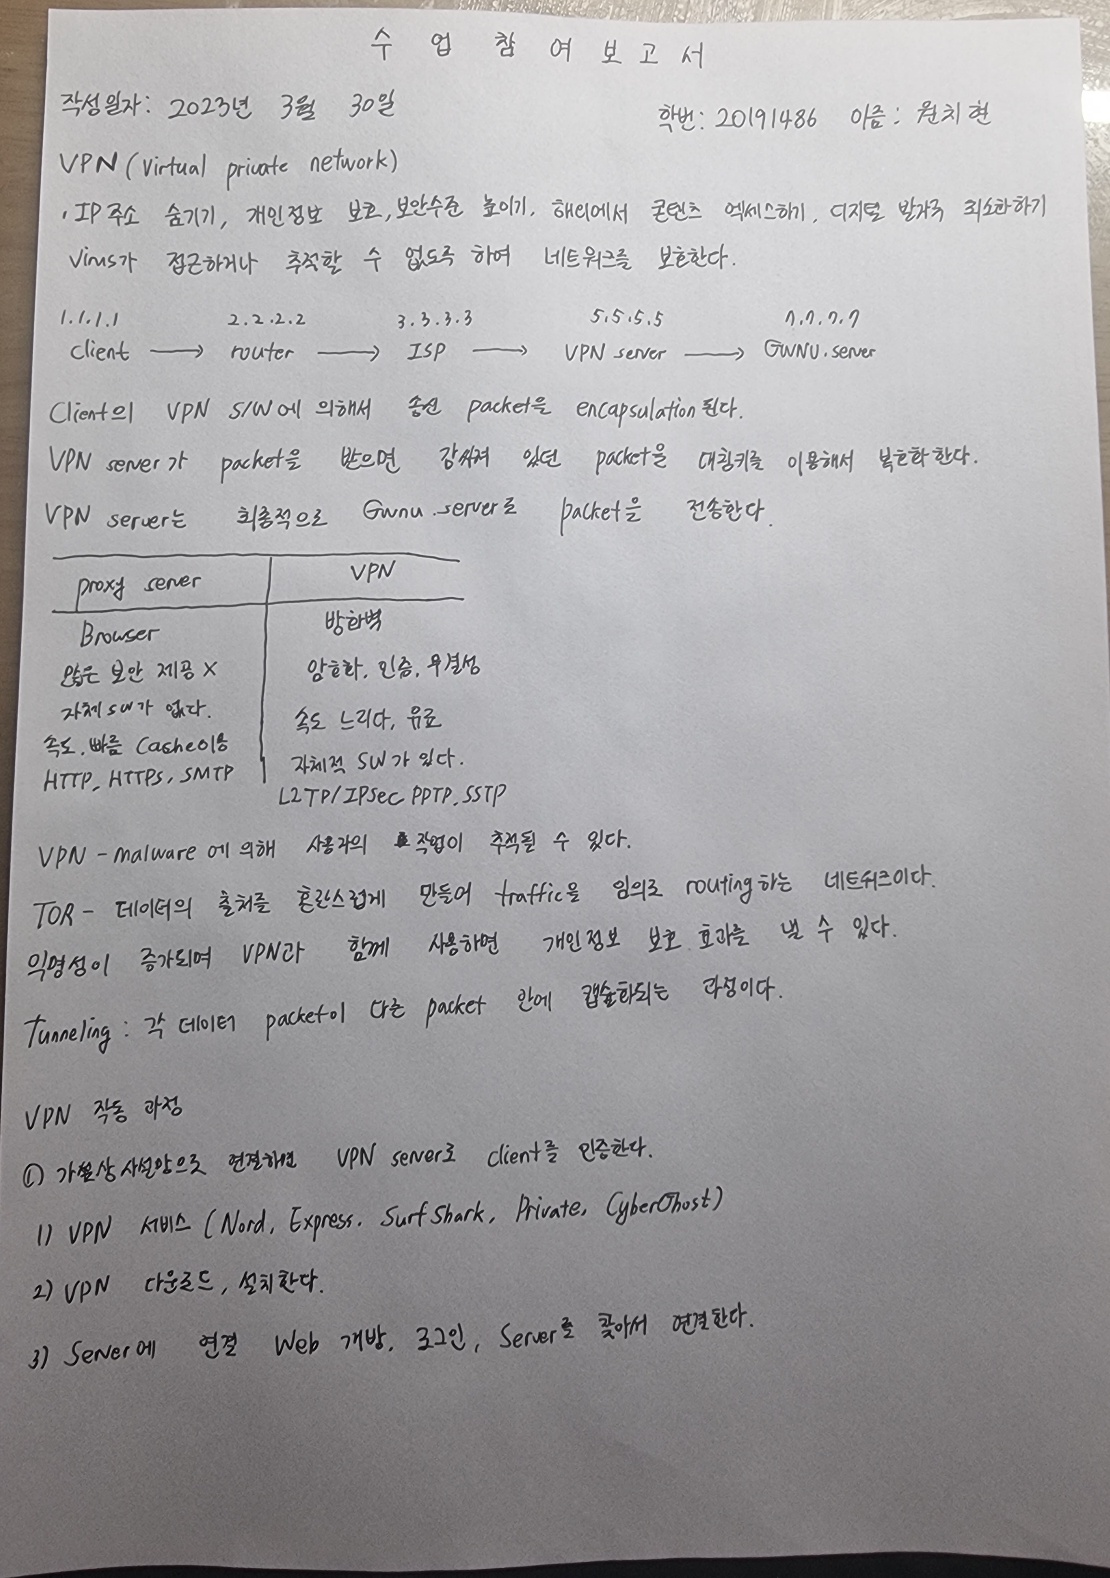 수 업 참 여 보 고 서
작성일자: 2023년 3월 30일 학번: 20191486 이름: 원치현
VPN (Virtual private network)
· IP주소 숨기기, 개인정보 보호, 보안수준 높이기, 해외에서 콘텐츠 엑세스하기, 디지털 발자국 최소화하기
Virus가 접근하거나 추적할 수 없도록 하여 네트워크를 보호한다.
1.1.1.1 2.2.2.2 3.3.3.3 5.5.5.5 7.7.7.7
Client → router → ISP → VPN server → GWNU.server
Client의 VPN S/W에 의해서 송신 packet을 encapsulation 된다.
VPN server가 packet을 받으면 감싸져 있던 packet을 대칭키를 이용해서 복호화한다.
VPN server는 최종적으로 Gwnu.server로 packet을 전송한다.
proxy server VPN
Browser 방화벽
많은 보안 제공 X 암호화, 인증, 무결성
자체 SW가 없다. 속도 느리다, 유료
속도, 빠름 Cashe이용 자체적 SW가 있다.
HTTP, HTTPS, SMTP L2TP/IPSec PPTP, SSTP
VPN - malware에 의해 사용자의 작업이 추적될 수 있다.
TOR - 데이터의 출처를 혼란스럽게 만들어 traffic을 임의로 routing하는 네트워크이다.
익명성이 증가되며 VPN과 함께 사용하면 개인정보 보호 효과를 낼 수 있다.
Tunneling : 각 데이터 packet이 다른 packet 안에 캡슐화되는 과정이다.
VPN 작동 과정
① 가상사설망으로 연결하면 VPN server로 client를 인증한다.
1) VPN 서비스 (Nord, Express, SurfShark, Private, CyberGhost)
2) VPN 다운로드, 설치한다.
3) Server에 연결 Web 개방, 로그인, Server를 찾아서 연결한다.